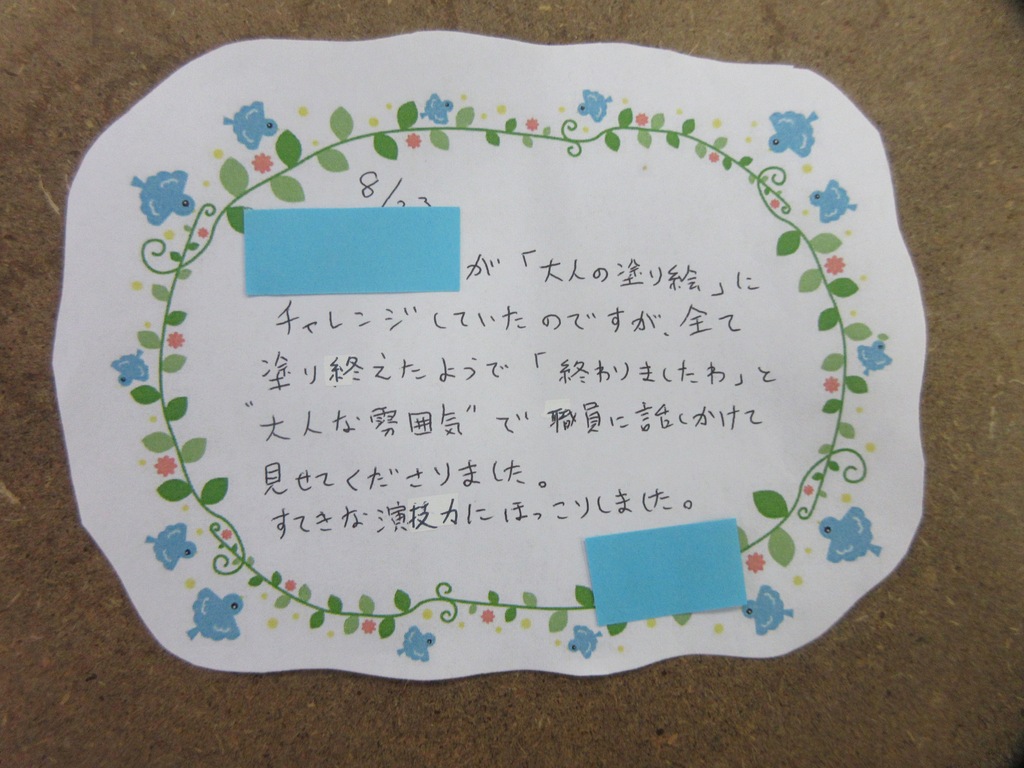 8/23
が「大人の塗り絵」に
チャレンジしていたのですが、全て
塗り終えたようで「終わりましたわ」と
"大人な雰囲気"で職員に話しかけて
見せてくださりました。
すてきな演技力にほっこりしました。